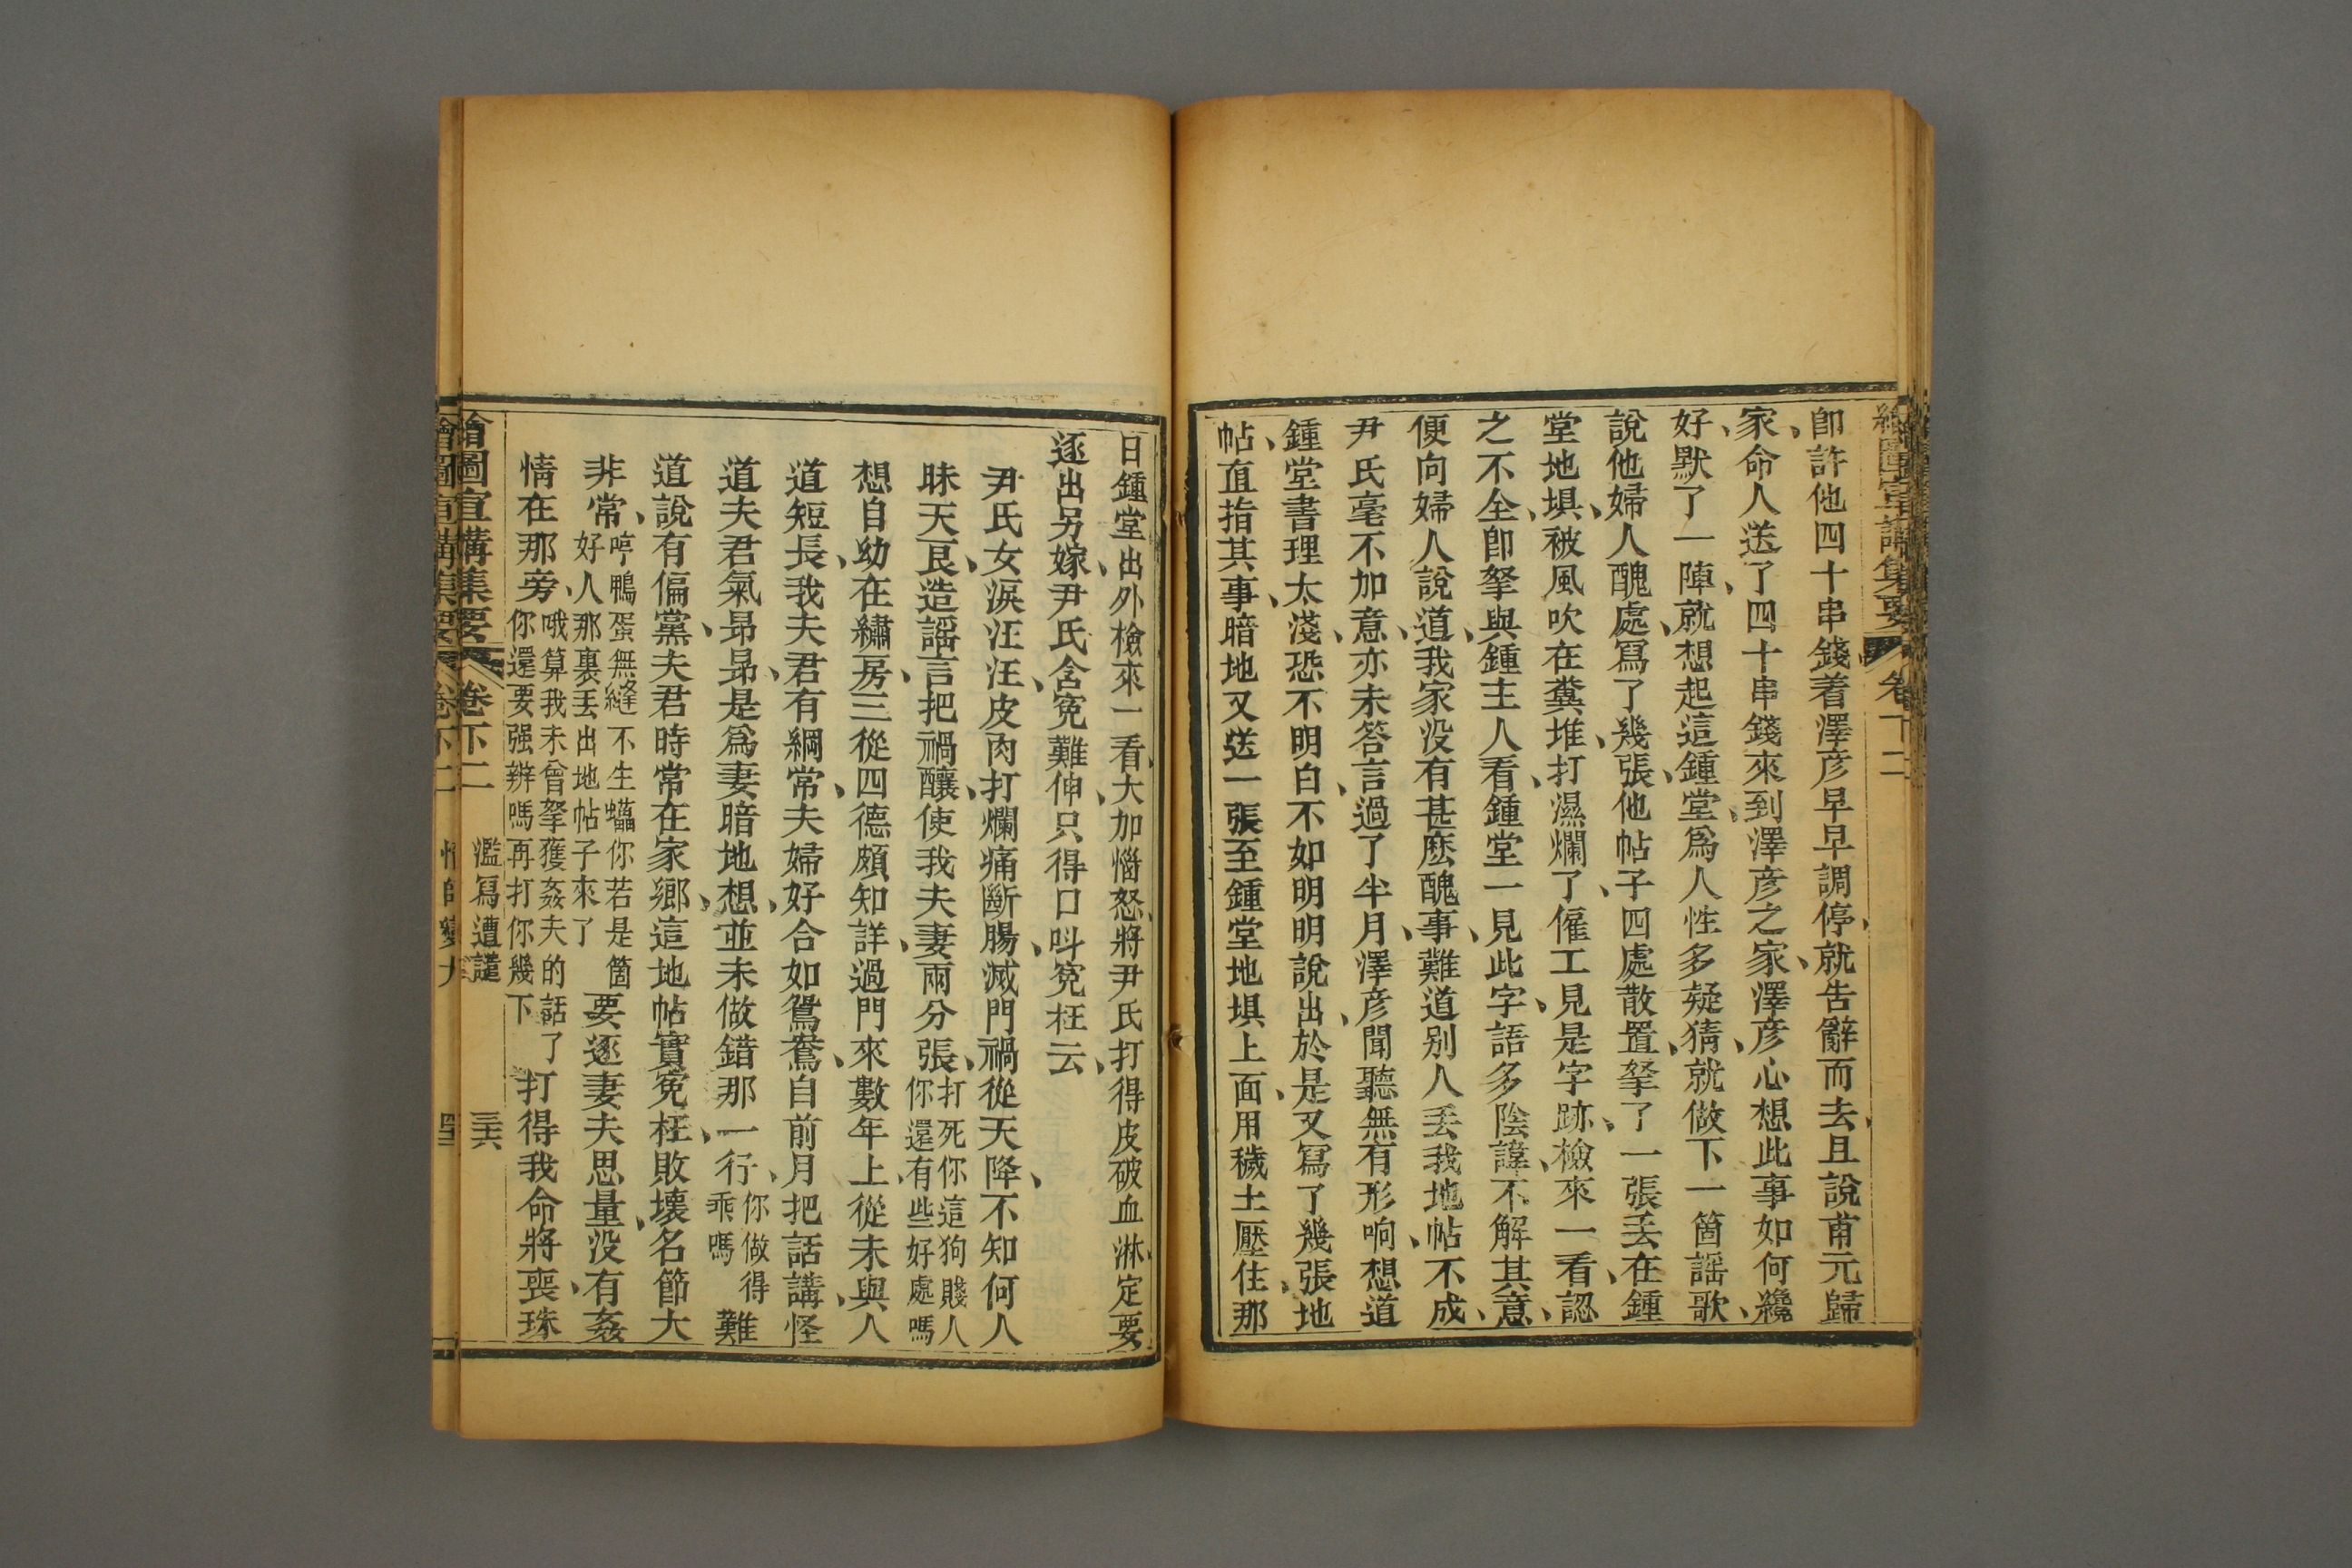 繪圖宣講集要 卷下二
卽許他四十串錢着澤彦早早調停、就告辭而去、且說甫元歸
家、命人送了四十串錢來到澤彦之家、澤彦心想此事如何纔
好、默了一陣、就想起這鍾堂、爲人性多疑猜、就做下一箇謡歌、
說他婦人醜處、寫了幾張、他帖子四處散置、拏了一張丢在鍾
堂地埧、被風吹在糞堆打濕爛了、僱工見是字跡、檢來一看、認
之不全、卽拏與鍾主人看、鍾堂一見此字、語多陰諱、不解其意、
便向婦人說道、我家没有甚麽醜事、難道别人丢我地帖不成、
尹氏毫不加意、亦未答言、過了半月、澤彦聞聽無有形响、想道
鍾堂書理太淺、恐不明白、不如明明說出、於是又寫了幾張地
帖、直指其事、暗地又送一張至鍾堂地埧上面、用穢土壓住、那
日鍾堂出外檢來一看、大加惱怒、將尹氏打得皮破血淋、定要
逐出另嫁、尹氏含寃難伸、只得口呌寃枉云、
尹氏女淚汪汪、皮肉打爛痛斷腸、滅門禍從天降、不知何人
昧天良、造謡言把禍釀、使我夫妻兩分張、打死你這狗賤人你還有些好處嗎
想自幼在繡房、三從四德頗知詳、過門來數年上、從未與人
道短長、我夫君有綱常、夫婦好合如鴛鴦、自前月把話講、怪
道夫君氣昻昻、是爲妻暗地想、並未做錯那一行、你做得乖嗎難
道說有偏黨、夫君時常在家鄉、這地帖實寃枉、敗壞名節大
非常、哼鴨蛋無縫不生蛆你若是箇好人那裏丢出地帖子來了要逐妻夫思量、没有姦
情在那旁、哦算我未曾拏獲姦夫的話了你還要强辨嗎再打你幾下打得我命將喪、珠
繪圖宣講集要 卷下二 濫寫遭譴 三六